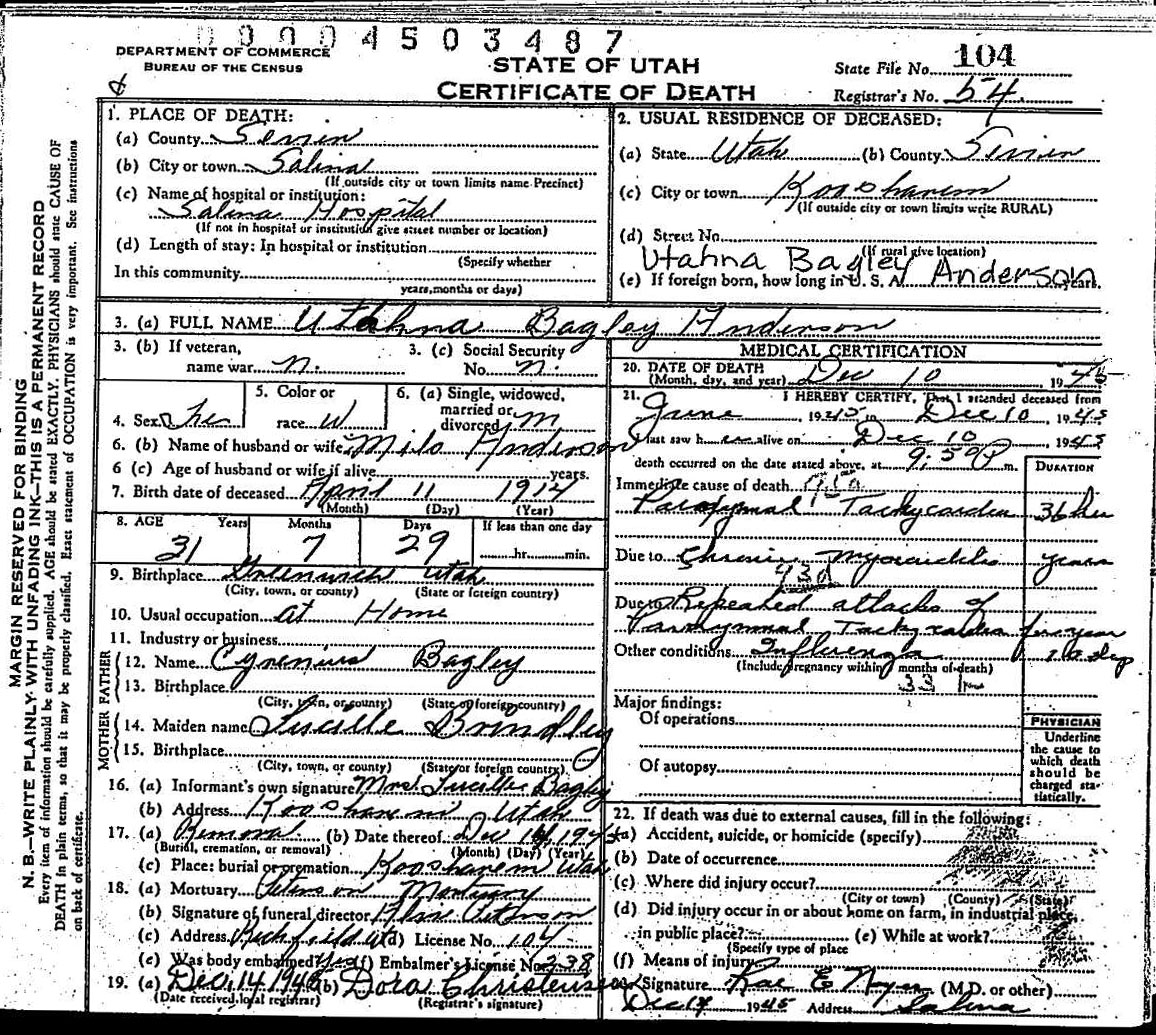 00004503487
DEPARTMENT OF COMMERCE
BUREAU OF THE CENSUS
STATE OF UTAH
CERTIFICATE OF DEATH
State File No. 104
Registrar's No. 54
MARGIN RESERVED FOR BINDING
N. B.—WRITE PLAINLY, WITH UNFADING INK—THIS IS A PERMANENT RECORD
Every item of information should be carefully supplied. AGE should be stated EXACTLY. PHYSICIANS should state CAUSE OF
DEATH in plain terms, so that it may be properly classified. Exact statement of OCCUPATION is very important. See instructions
on back of certificate.
1. PLACE OF DEATH:
(a) County Sevier
(b) City or town Salina
(If outside city or town limits name Precinct)
(c) Name of hospital or institution:
Salina Hospital
(If not in hospital or institution give street number or location)
(d) Length of stay: In hospital or institution
(Specify whether
In this community
years, months or days)
2. USUAL RESIDENCE OF DECEASED:
(a) State Utah (b) County Sevier
(c) City or town Koosharem
(If outside city or town limits write RURAL)
(d) Street No.
(If rural give location)
Utahna Bagley Anderson
(e) If foreign born, how long in U. S. A. years.
3. (a) FULL NAME Utahna Bagley Anderson
3. (b) If veteran, name war n.
3. (c) Social Security No. n.
4. Sex
5. Color or race W
6. (a) Single, widowed, married or divorced M
6. (b) Name of husband or wife Milo Anderson
6 (c) Age of husband or wife if alive years.
7. Birth date of deceased April 11 1914
(Month) (Day) (Year)
8. AGE Years Months Days If less than one day
31 7 29 hr. min.
9. Birthplace Greenwich Utah
(City, town, or county) (State or foreign country)
10. Usual occupation at Home
11. Industry or business
FATHER
12. Name Cyrenius Bagley
13. Birthplace
(City, town, or county) (State or foreign country)
MOTHER
14. Maiden name Lucille Brindley
15. Birthplace
(City, town, or county) (State or foreign country)
16. (a) Informant's own signature Mrs. Lucille Bagley
(b) Address Koosharem Utah
17. (a) Removal (b) Date thereof Dec 14, 1945
(Burial, cremation, or removal) (Month) (Day) (Year)
(c) Place: burial or cremation Koosharem Utah
18. (a) Mortuary Peterson Mortuary
(b) Signature of funeral director Peterson
(c) Address Richfield Ut (d) License No. 107
(e) Was body embalmed Yes (f) Embalmer's License No. 238
19. (a) Dec. 14 1945 (b) Dora Christensen
(Date received local registrar) (Registrar's signature)
MEDICAL CERTIFICATION
20. DATE OF DEATH
(Month, day, and year) Dec 10 1945
21. I HEREBY CERTIFY, That I attended deceased from
June 1945 to Dec 10, 1945
I last saw her alive on Dec 10 1945
death occurred on the date stated above, at 9:50 P m.
DURATION
Immediate cause of death
Paroxymal Tachycardia 36 hrs
Due to Chronic Myocarditis years
93d
Due to Repeated attacks of
Paroxymmal Tachycardia for year
Other conditions Influenza 10 days
(Include pregnancy within 3 months of death)
33
Major findings:
Of operations
Of autopsy
PHYSICIAN
Underline
the cause to
which death
should be
charged sta-
tistically.
22. If death was due to external causes, fill in the following:
(a) Accident, suicide, or homicide (specify)
(b) Date of occurrence
(c) Where did injury occur?
(City or town) (County) (State)
(d) Did injury occur in or about home on farm, in industrial place,
in public place? (e) While at work?
(Specify type of place
(f) Means of injury
Signature Rae E Noyes (M.D. or other)
Dec 14 1945 Address Salina